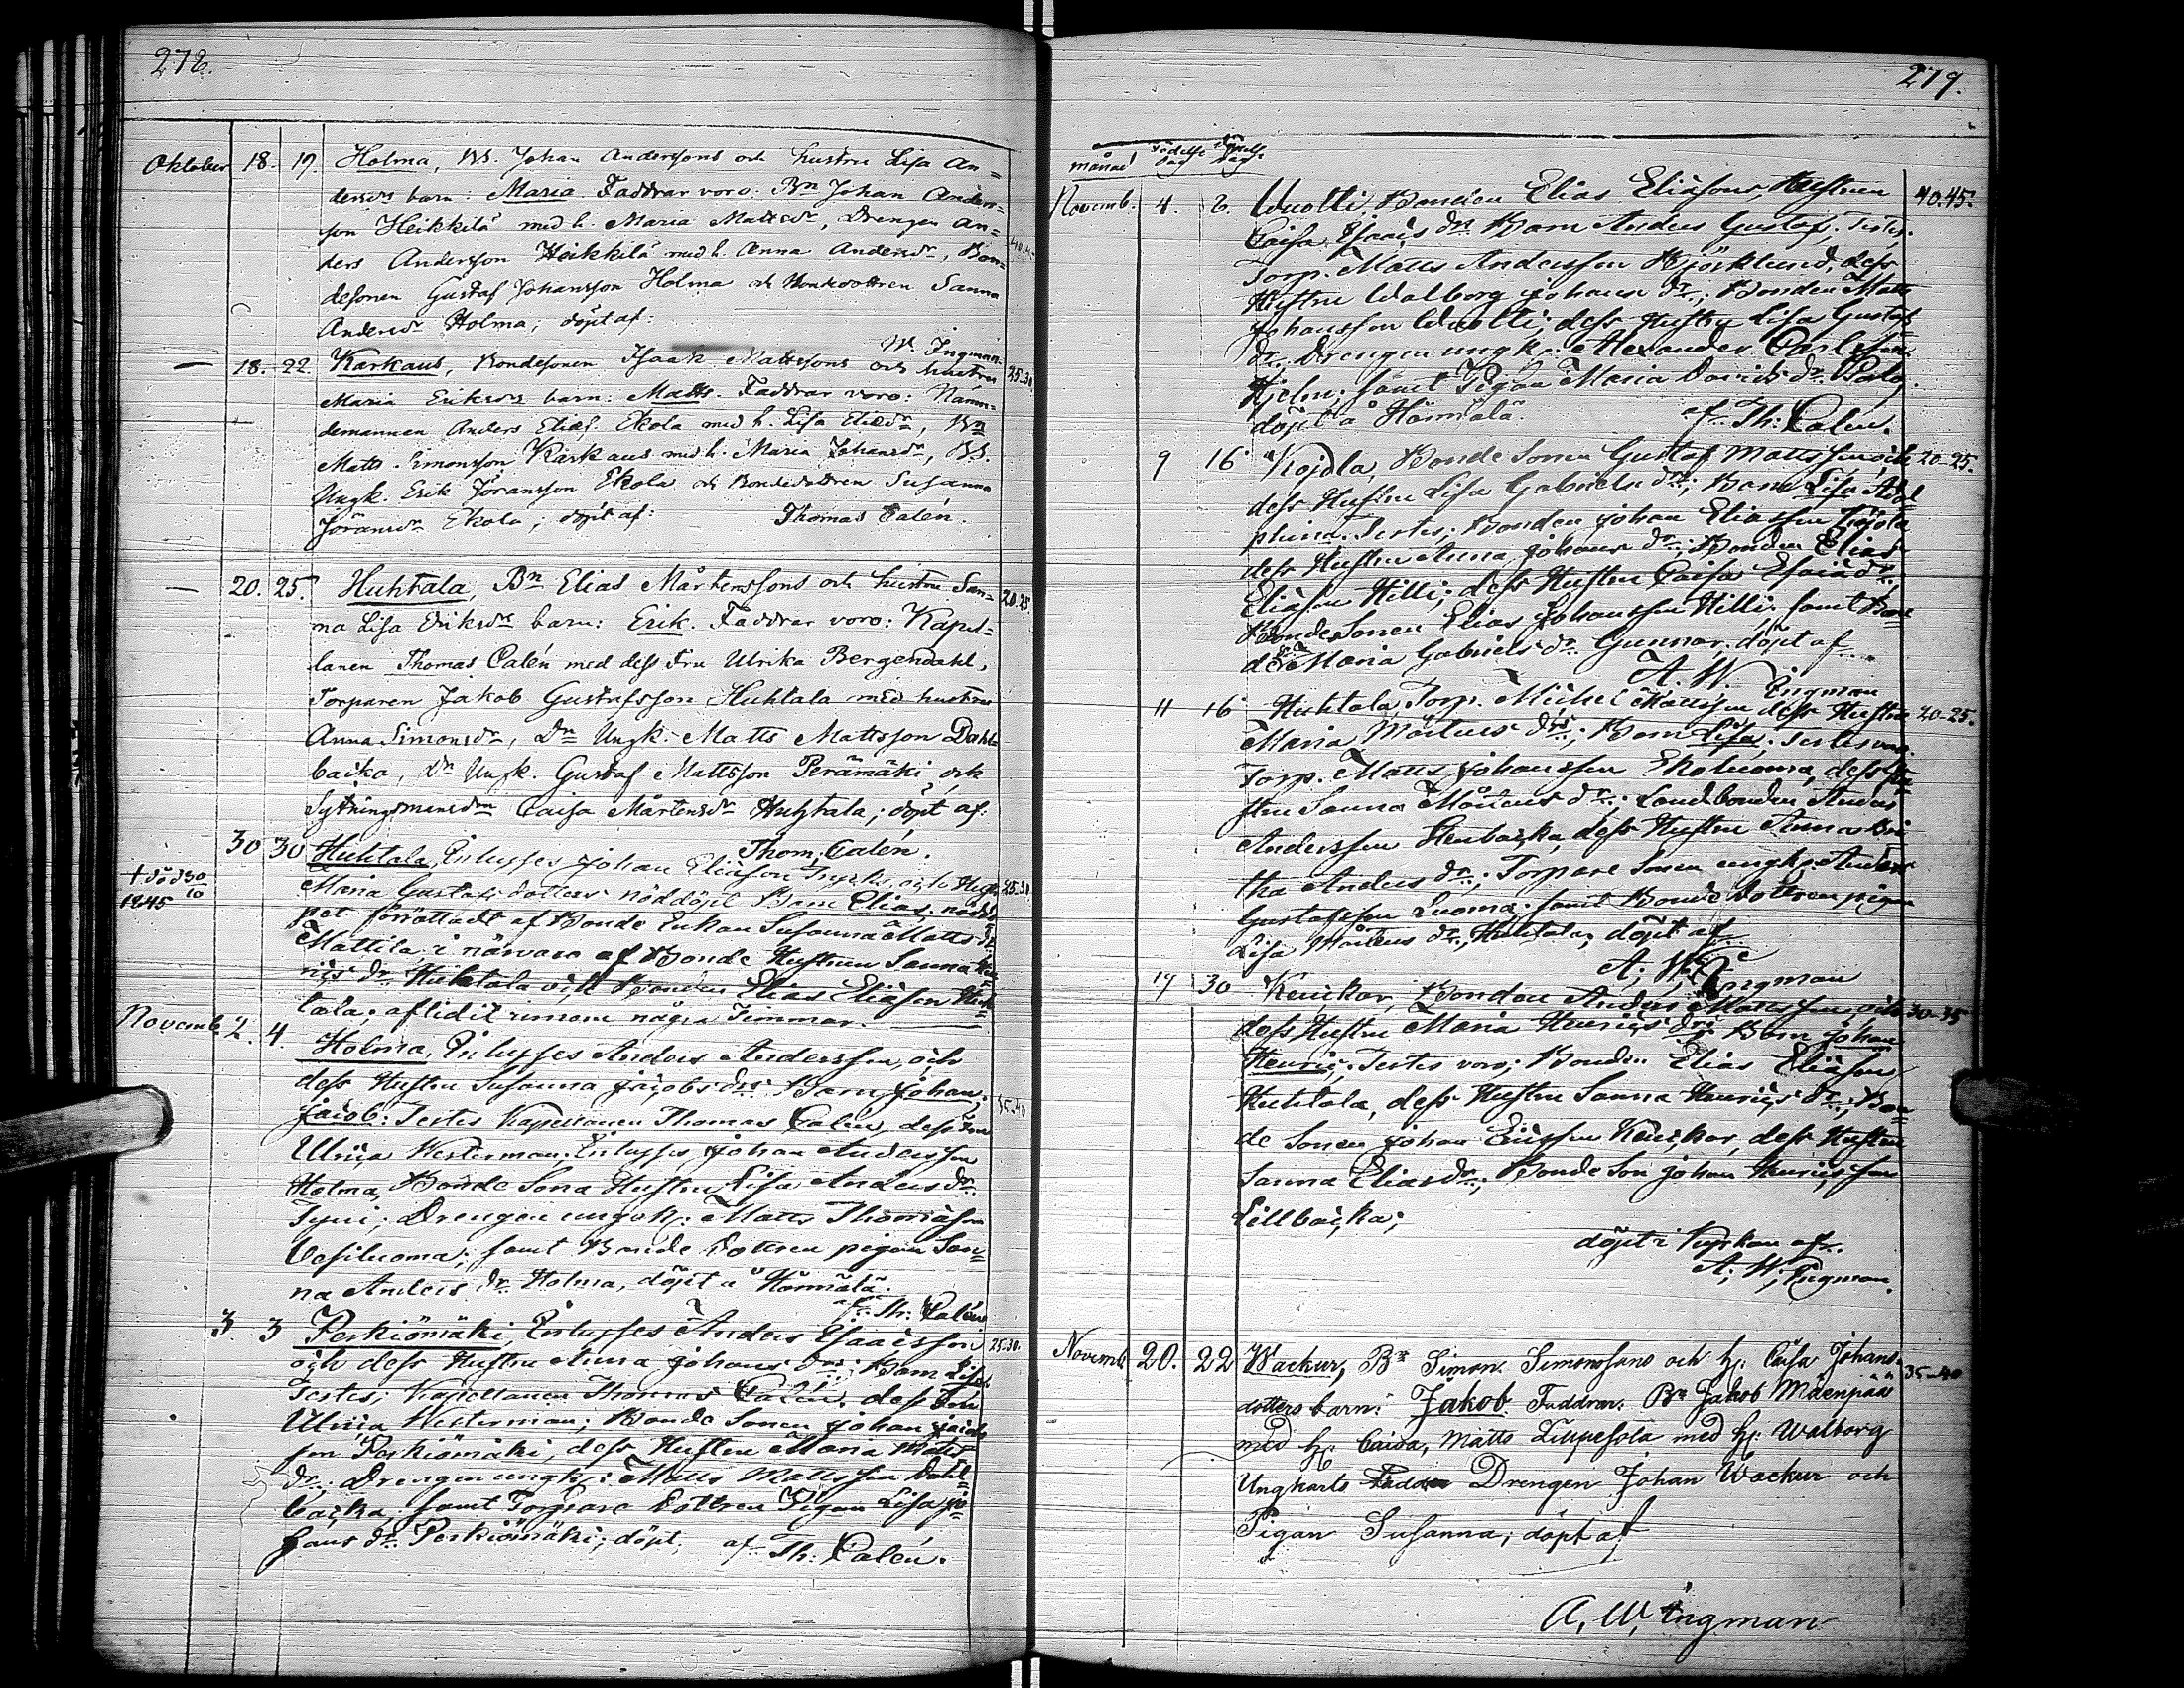 278.
Oktober 18. 19. Holma, BS. Johan Anderssons och hustru Lisa An=
dersdrs barn: Maria Faddrar voro: Bn Johan Anders=
son Heikkilä med h. Maria Mattsdr, Drengen An=
ders Andersson Heikkilä med h. Anna Andersdr, Bon=
desonen Gustaf Johansson Holma och Bondedottren Sanna
Andersdr Holma; döpt af:
W. Ingman.
— 18. 22. Karkaus, Bondesonen Isaak Mattssons och hustru 25.30
Maria Eriksdrs barn: Matts. Faddrar voro: Nämn=
demannen Anders Eliass. Ekola med h. Lisa Eliedr, Bn
Matts Simonsson Karkaus med h. Maria Johansdr, BS.
Ungk. Erik Jöransson Ekola och Bondedottren Susanna
Jöransdr Ekola; döpt af: Thomas Calén.
— 20. 25. Huhtala, Bn Elias Mårtenssons och hustru San= 20.25.
na Lisa Eriksdrs barn: Erik. Faddrar voro: Kapel=
lanen Thomas Calén med dess Fru Ulrika Bergendahl,
Torparen Jakob Gustafsson Huhtala med hustru
Anna Simonsdr, Dn Ungk. Matts Mattsson Dahl=
backa, Dn Ungk. Gustaf Mattsson Perämäki och
Sytningsmansdrn Caisa Mårtensdr Huhtala; döpt af:
Thom; Calén.
30 30 Huhtala, Inhysses Johan Eliasson och Hust 25.30
† död 30/10 1845
Maria Gustafs dotters nöddöpt Barn Elias, nödd
pet förrättadt af Bonde Enkan Susanna Matts dr
Mattila i närvaro af Bonde Hustrun Sanna Hen
rics dr Huhtala och Bonden Elias Eliasson Huh
tala; aflidit innom några Timmar.
Novemb 2. 4. Holma, Inhysses Anders Andersson, och
dess Hustru Susanna Jacobs drs Barn Johan 35.40
Jacob: Testes Kapellanen Thomas Calén, dess Fru
Ulrica Westerman; Inhysses Johan Andersson
Holma, Bonde Sona Hustru Lisa Anders dr
Tyni; Drengen ungk: Matts Thomasson
Vesiluoma; samt Bonde dottren pigan San=
na Anders dr Holma, döpt å Hörmälä.
af Th: Calén
3. 3 Perkiömäki, Inhysses Anders Esaiasson 25.30.
och dess Hustru Anna Johans drs: Barn Lisa
Testes; Kapellanen Thomas Calén, dess Fru
Ulrica Westerman; Bonde Sonen Johan Jacobs
son Perkiömäki, dess Hustru Maria Matts
dr; Drengen ungk: Matts Mattsson Dahl=
backa, samt Torpare dottren Pigan Lisa Jo=
hans dr Perkiömäki; döpt, af Th: Calén.
279.
månad födelse dag döpelse dag.
Novemb. 4. 6. Wuolli Bonden Elias Eliasons, Hustrun 40.45.
Caisa Esaias drs Barn Anders Gustaf; Testes:
Torp. Matts Andersson Björklund, dess
Hustru Walborg Johans dr; Bonden Matts
Johansson Wuolli, dess Hustru Lisa Gustafs
dr Drengen ungk: Alexander Carlsson
Hjelm; samt Pigan Maria Davids dr
döpt å Hörmälä. af Th: Calén.
9 16 Kojola, Bonde Sonen Gustaf Mattsson och 20-25.
dess Hustru Lisa Gabriels drs; Barn Lisa Adol
phina. Testes; Bonden Johan Eliasson Kojola
dess Hustru Anna Johans dr; Bonden Elias
Eliasson Hilli; dess Hustru Caisa Esaiædr;
Bonde Sonen Elias Johansson Hilli, samt Bonde
Maria Gabriels dr Gunnar. döpt af
A. W. Ingman
11 16 Huhtala, Torp. Michel Mattsson dess Hustru 20-25.
Maria Mårtens drs; Barn Lisa; Testes voro:
Torp. Matts Johansson Ekoluoma, dess Hu
stru Sanna Mårtens dr; Landbonden Anders
Andersson Stenbacka, dess Hustru Anna Bri
tha Anders dr; Torpare Sonen ungk: Anders
Gustafsson Luoma; samt Bonde dottren pigan
Lisa Mårtens dr; Huhtala; döpt af
A; W; Ingman
19 30 Keuckar, Bonden Anders Mattsson, och 30-35
dess Hustru Maria Henrics drs Barn Johan
Henric; Testes voro; Bonden Elias Eliason
Huhtala, dess Hustru Sanna Henrics dr; Bon
de Sonen Johan Ericsson Keuckar, dess Hustru
Sanna Eliasdr; Bonde Son Johan Henricsson
Lillbacka;
döpt i Kyrkan af
A; W; Ingman.
Novemb 20. 22 Wackur, Bn Simon Simonssons och h: Caisa Johans- 35-40
dotters barn: Jakob. Faddrar: Bn Jakob Mäenpää
med h: Caisa, Matts Lippesola med h: Walborg
Ungkarls Drengen Johan Wackur och
Pigan Susanna; döpt af
A. W. Ingman